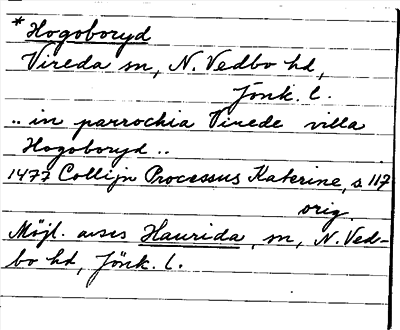 * Hogoboryd
Vireda sn, N. Vedbo hd,
Jönk. l.
.. in parrochia Virede villa
Hogoboryd ..
1477 Collijn Processus Katerine, s 117
orig.
Möjl. avses Haurida, sn, N. Ved-
bo hd, Jönk. l.